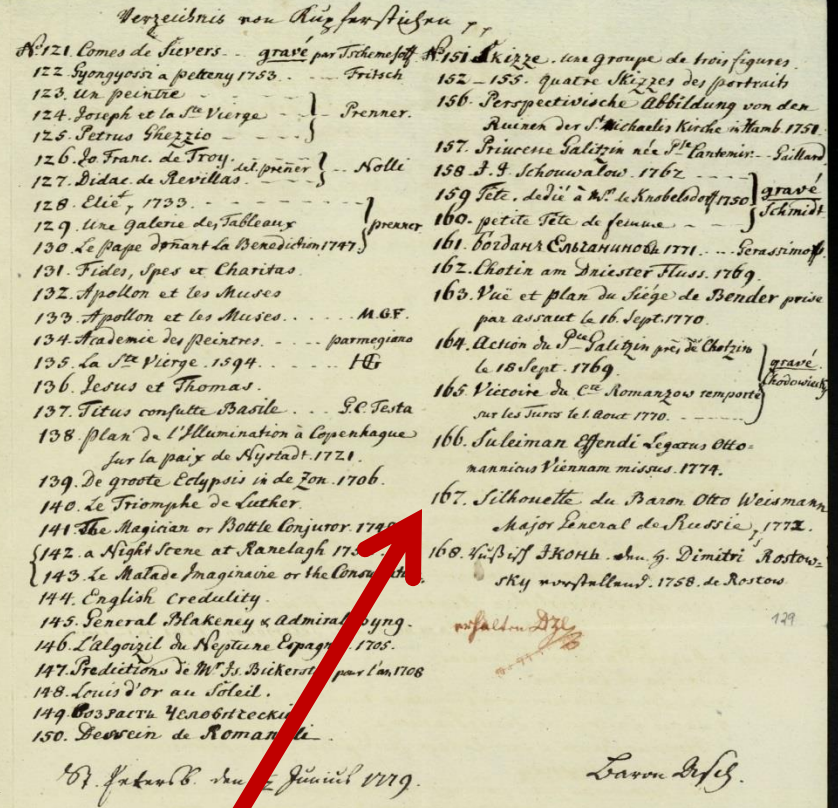 Verzeichnis von Kupferstichen
No. 121. Comes de Sievers - - gravé par Tschemesoff
122. Gyongyossi a petteny 1753. - - - Fritsch
123. un peintre - - -
124. Joseph et la Ste Vierge - - - } Prenner.
125. Petrus Ghezzio - - -
126. Jo Franc. de Troy.
127. Didac. de Revillas. } del. prenner } - - Nolli
128. Elie, 1733. - - -
129. Une galerie des Tableaux } prenner
130. Le Pape donant la Benediction 1747.
131. Fides, Spes et Charitas.
132. Apollon et les Muses
133. Apollon et les Muses. . . . . . M.GF.
134. Academie des peintres. - - - parmegiano
135. La Ste Vierge. 1594. - - - HG
136. Jesus et Thomas.
137. Titus consulte Basile. . . . G.C. Testa
138. Plan de l'Illumination à Copenhague
sur la paix de Nystadt. 1721.
139. De groote Eclypsis in de Zon. 1706.
140. Le Triomphe de Luther.
141. The Magician or Bottle Conjuror.
142. a Night Scene at Ranelagh
143. Le Malade Imaginaire or the
144. English credulity.
145. General Blakeney & Admiral Byng.
146. L'Algoizil du Neptune 1705.
147. Predictions de Mr Js. pour l'an 1708
148. Louis d'or au Soleil.
149. Возрасть
150. Dessein de
St. Petersb. den Junius 1779.
No. 151. Skizze. une groupe de trois figures.
152 - 155. quatre Skizzes des portraits
156. Perspectivische Abbildung von den
Ruinen der St. Michaelis Kirche in Hamb. 1750.
157. Princesse Galitzin née Psse Cantemir. - - Gaillard
158. J. J. Schouwalow. 1762 - - -
159. Tête. dedié à Mr. de Knobelsdorff 1750 } gravé
160. petite Tête de femme - - - Schmidt
161. Богданъ Ельчаниновъ 1771. - - - Gerassimoff.
162. Chotin am Dniester Fluss. 1769.
163. Vuë et plan du Siége de Bender prise
par assaut le 16. Sept. 1770.
164. Action du Pce Galitzin près de Chotzim
le 18 Sept. 1769. } gravé.
165. Victoire du Cte Romanzow remporté Chodowiecky
sur les Turcs le 1. Aout 1770. - - -
166. Suleiman Effendi Legatus Otto=
mannicus Viennam missus. 1774.
167. Silhouette du Baron Otto Weismann
Major General de Russie, 1772.
168. ИКОНЬ. den H. Dimitri Rostow=
sky vorstellend. 1758. de Rostow
erhalten
129
Baron Asch.